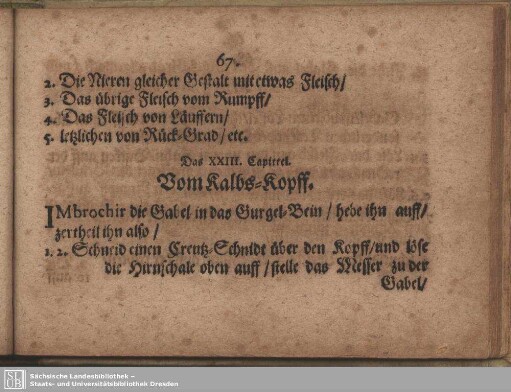 67.
2. Die Nieren gleicher Gestalt mit etwas Fleisch/
3. Das übrige Fleisch vom Rumpff/
4. Das Fleisch von Läuffern/
5. letzlichen von Rück-Grad/ etc.
Das XXIII. Capittel.
Vom Kalbs-Kopff.
IMbrochir die Gabel in das Gurgel-Bein / hebe ihn auff/
zertheil ihn also /
1. 2. Schneid einen Creutz-Schnidt über den Kopff/und löse
die Hirnschale oben auff /stelle das Messer zu der
Gabel/
Sächsische Landesbibliothek –
Staats- und Universitätsbibliothek Dresden